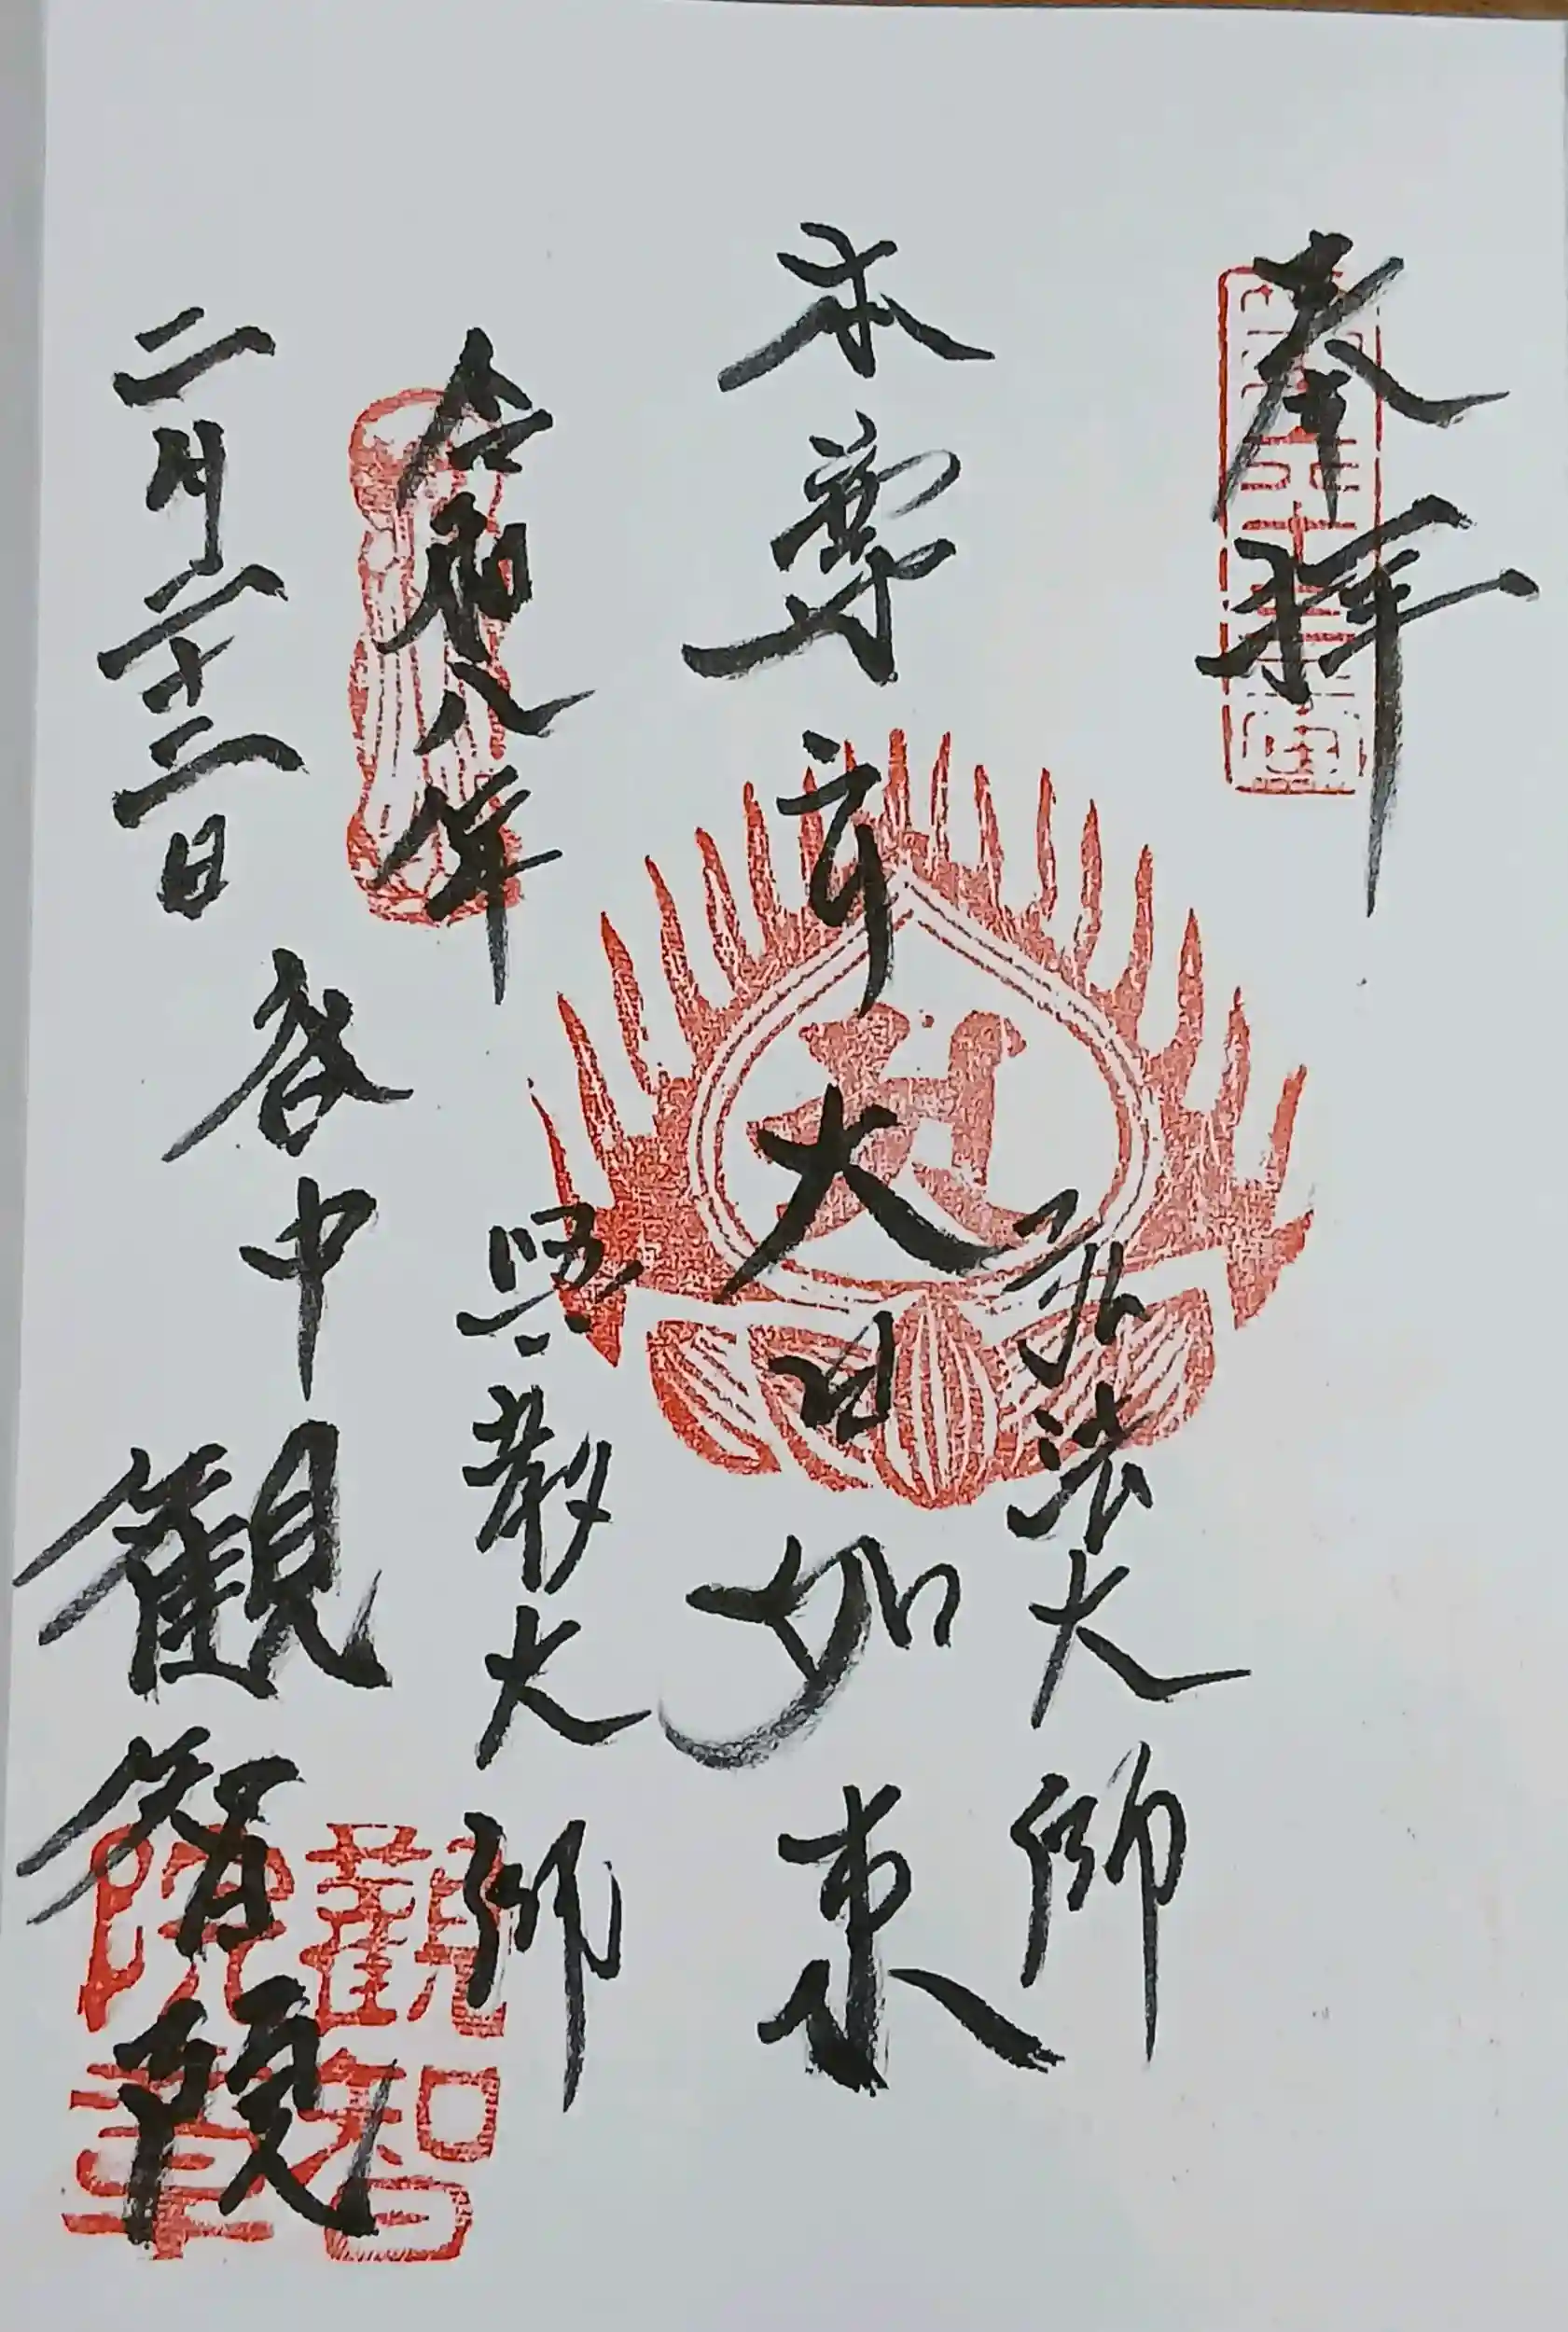 奉拝
弘法大師
本尊 大日如来
興教大師
令和八年
二月二十二日
谷中 観智院
觀智院章